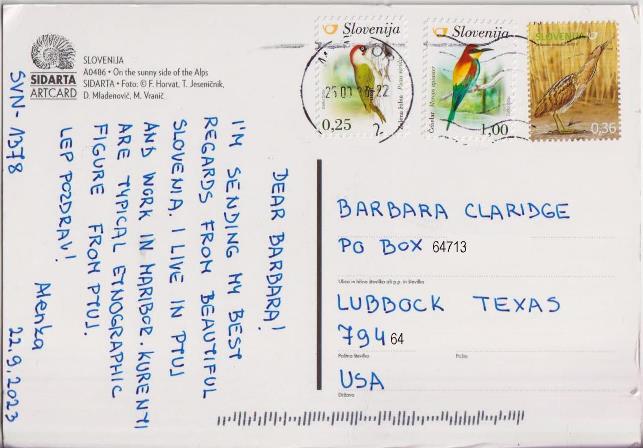 SLOVENIJA
A0486 • On the sunny side of the Alps
SIDARTA • Foto: © F. Horvat, T. Jeseničnik,
D. Mladenović, M. Vranič
SIDARTA
ARTCARD
SVN-1378
Slovenija
0,25
Slovenija
1,00
SLOVENIJA
0,36
DEAR BARBARA!
I'M SENDING MY BEST
REGARDS FROM BEAUTIFUL
SLOVENIA. I LIVE IN PTUJ
AND WORK IN MARIBOR. KURENTI
ARE TYPICAL ETNOGRAPHIC
FIGURE FROM PTUJ.
LEP POZDRAV!
Alenka
22.9.2023
BARBARA CLARIDGE
PO BOX 64713
Ulica in hišna številka ali p.p. in številka
LUBBOCK TEXAS
79464
Poštna številka Pošta
USA
Država